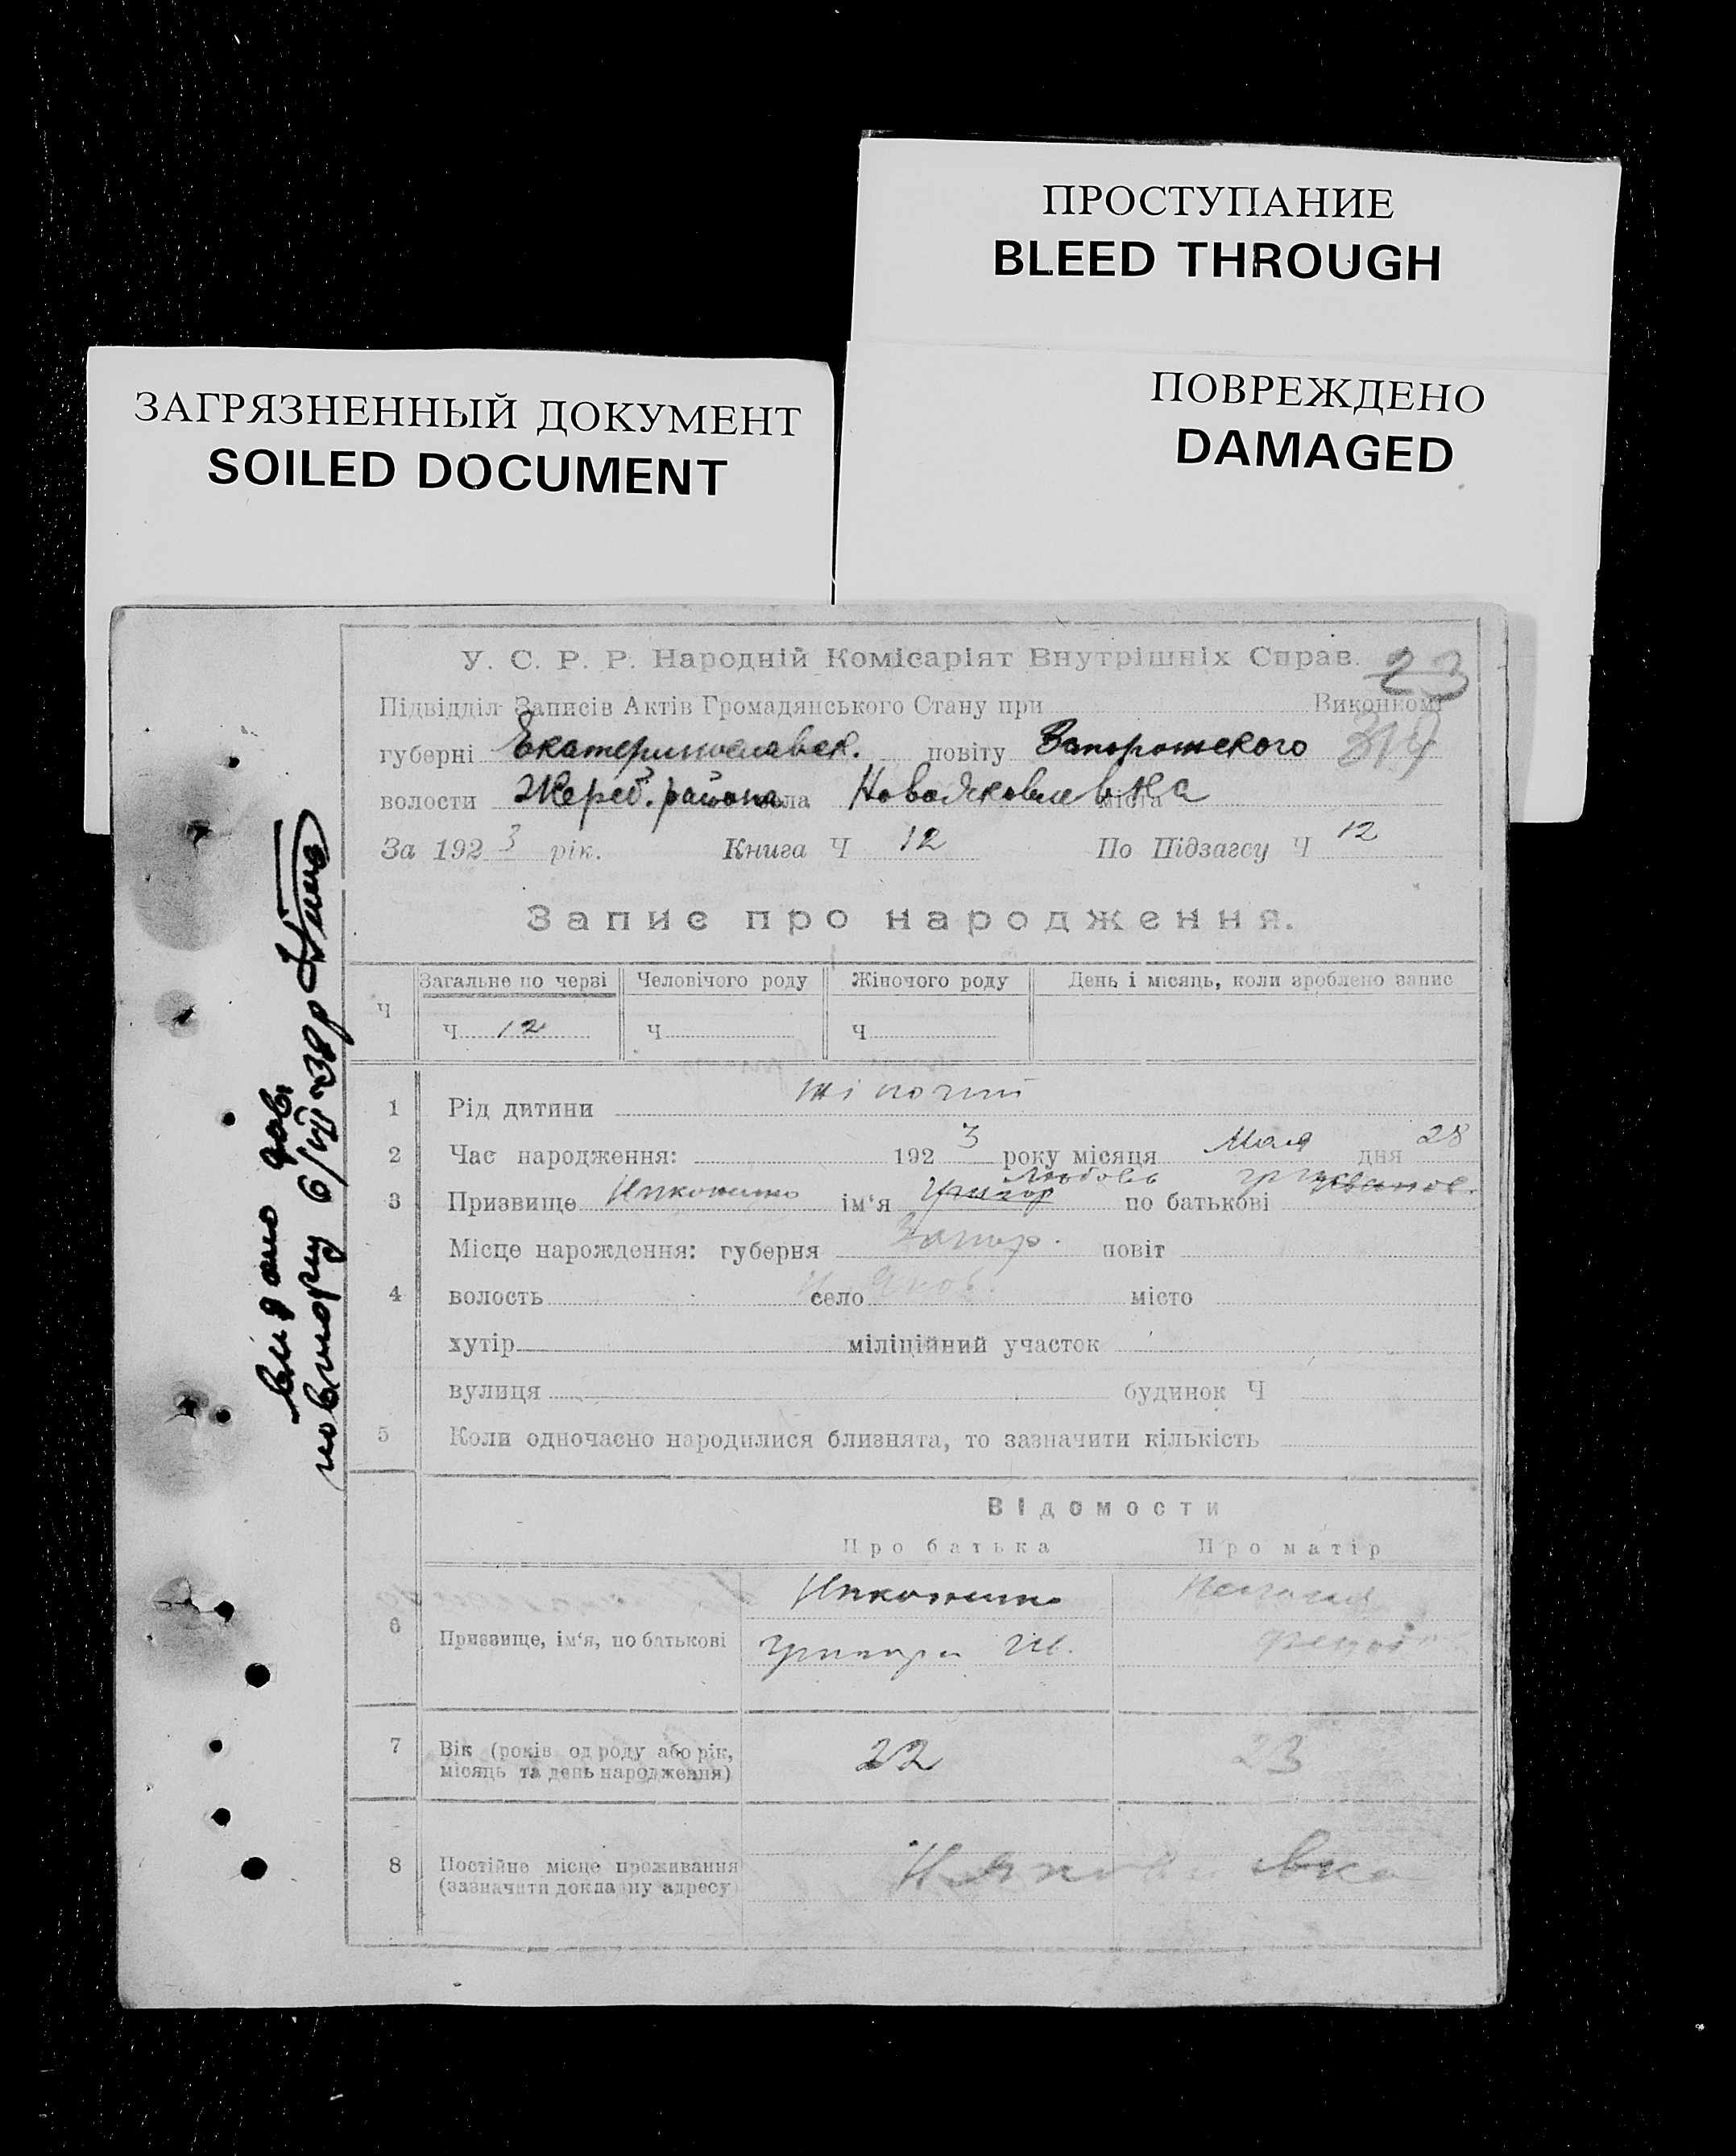 ПРОСТУПАНИЕ
BLEED THROUGH
ПОВРЕЖДЕНО
DAMAGED
ЗАГРЯЗНЕННЫЙ ДОКУМЕНТ
SOILED DOCUMENT
У. С. Р. Р. Народній Комісаріят Внутрішніх Справ. 23
Підвідділ Записів Актів Громадянського Стану при Виконкомі
губерні Екатеринославск. повіту Запорожского 319
волости Жереб. района села Новояковлевка міста
За 192 3 рік. Книга Ч 12 По Підзагсу Ч 12
Запис про народження.
Ч Загальне по черзі Человічого роду Жіночого роду День і місяць, коли зроблено запис
Ч 12 Ч Ч
1 Рід дитини жіночий
2 Час народження: 192 3 року місяця Мая дня 28
Любовь
3 Призвище ім‘я Григор по батькові
Місце нарождення: губерня Запор. повіт
4 волость село Н Яков. місто
хутір міліційний участок
вулиця будинок Ч
5 Коли одночасно народилися близнята, то зазначити кількість
Відомости
Про батька Про матір
6 Призвище, ім‘я, по батькові
Григори Ив.
7 Вік (років од роду або рік, місяць та день народження) 22 23
8 Постійне місце проживання
(зазначити докла ну адресу
видано дов.
повторну 6/VII-38р